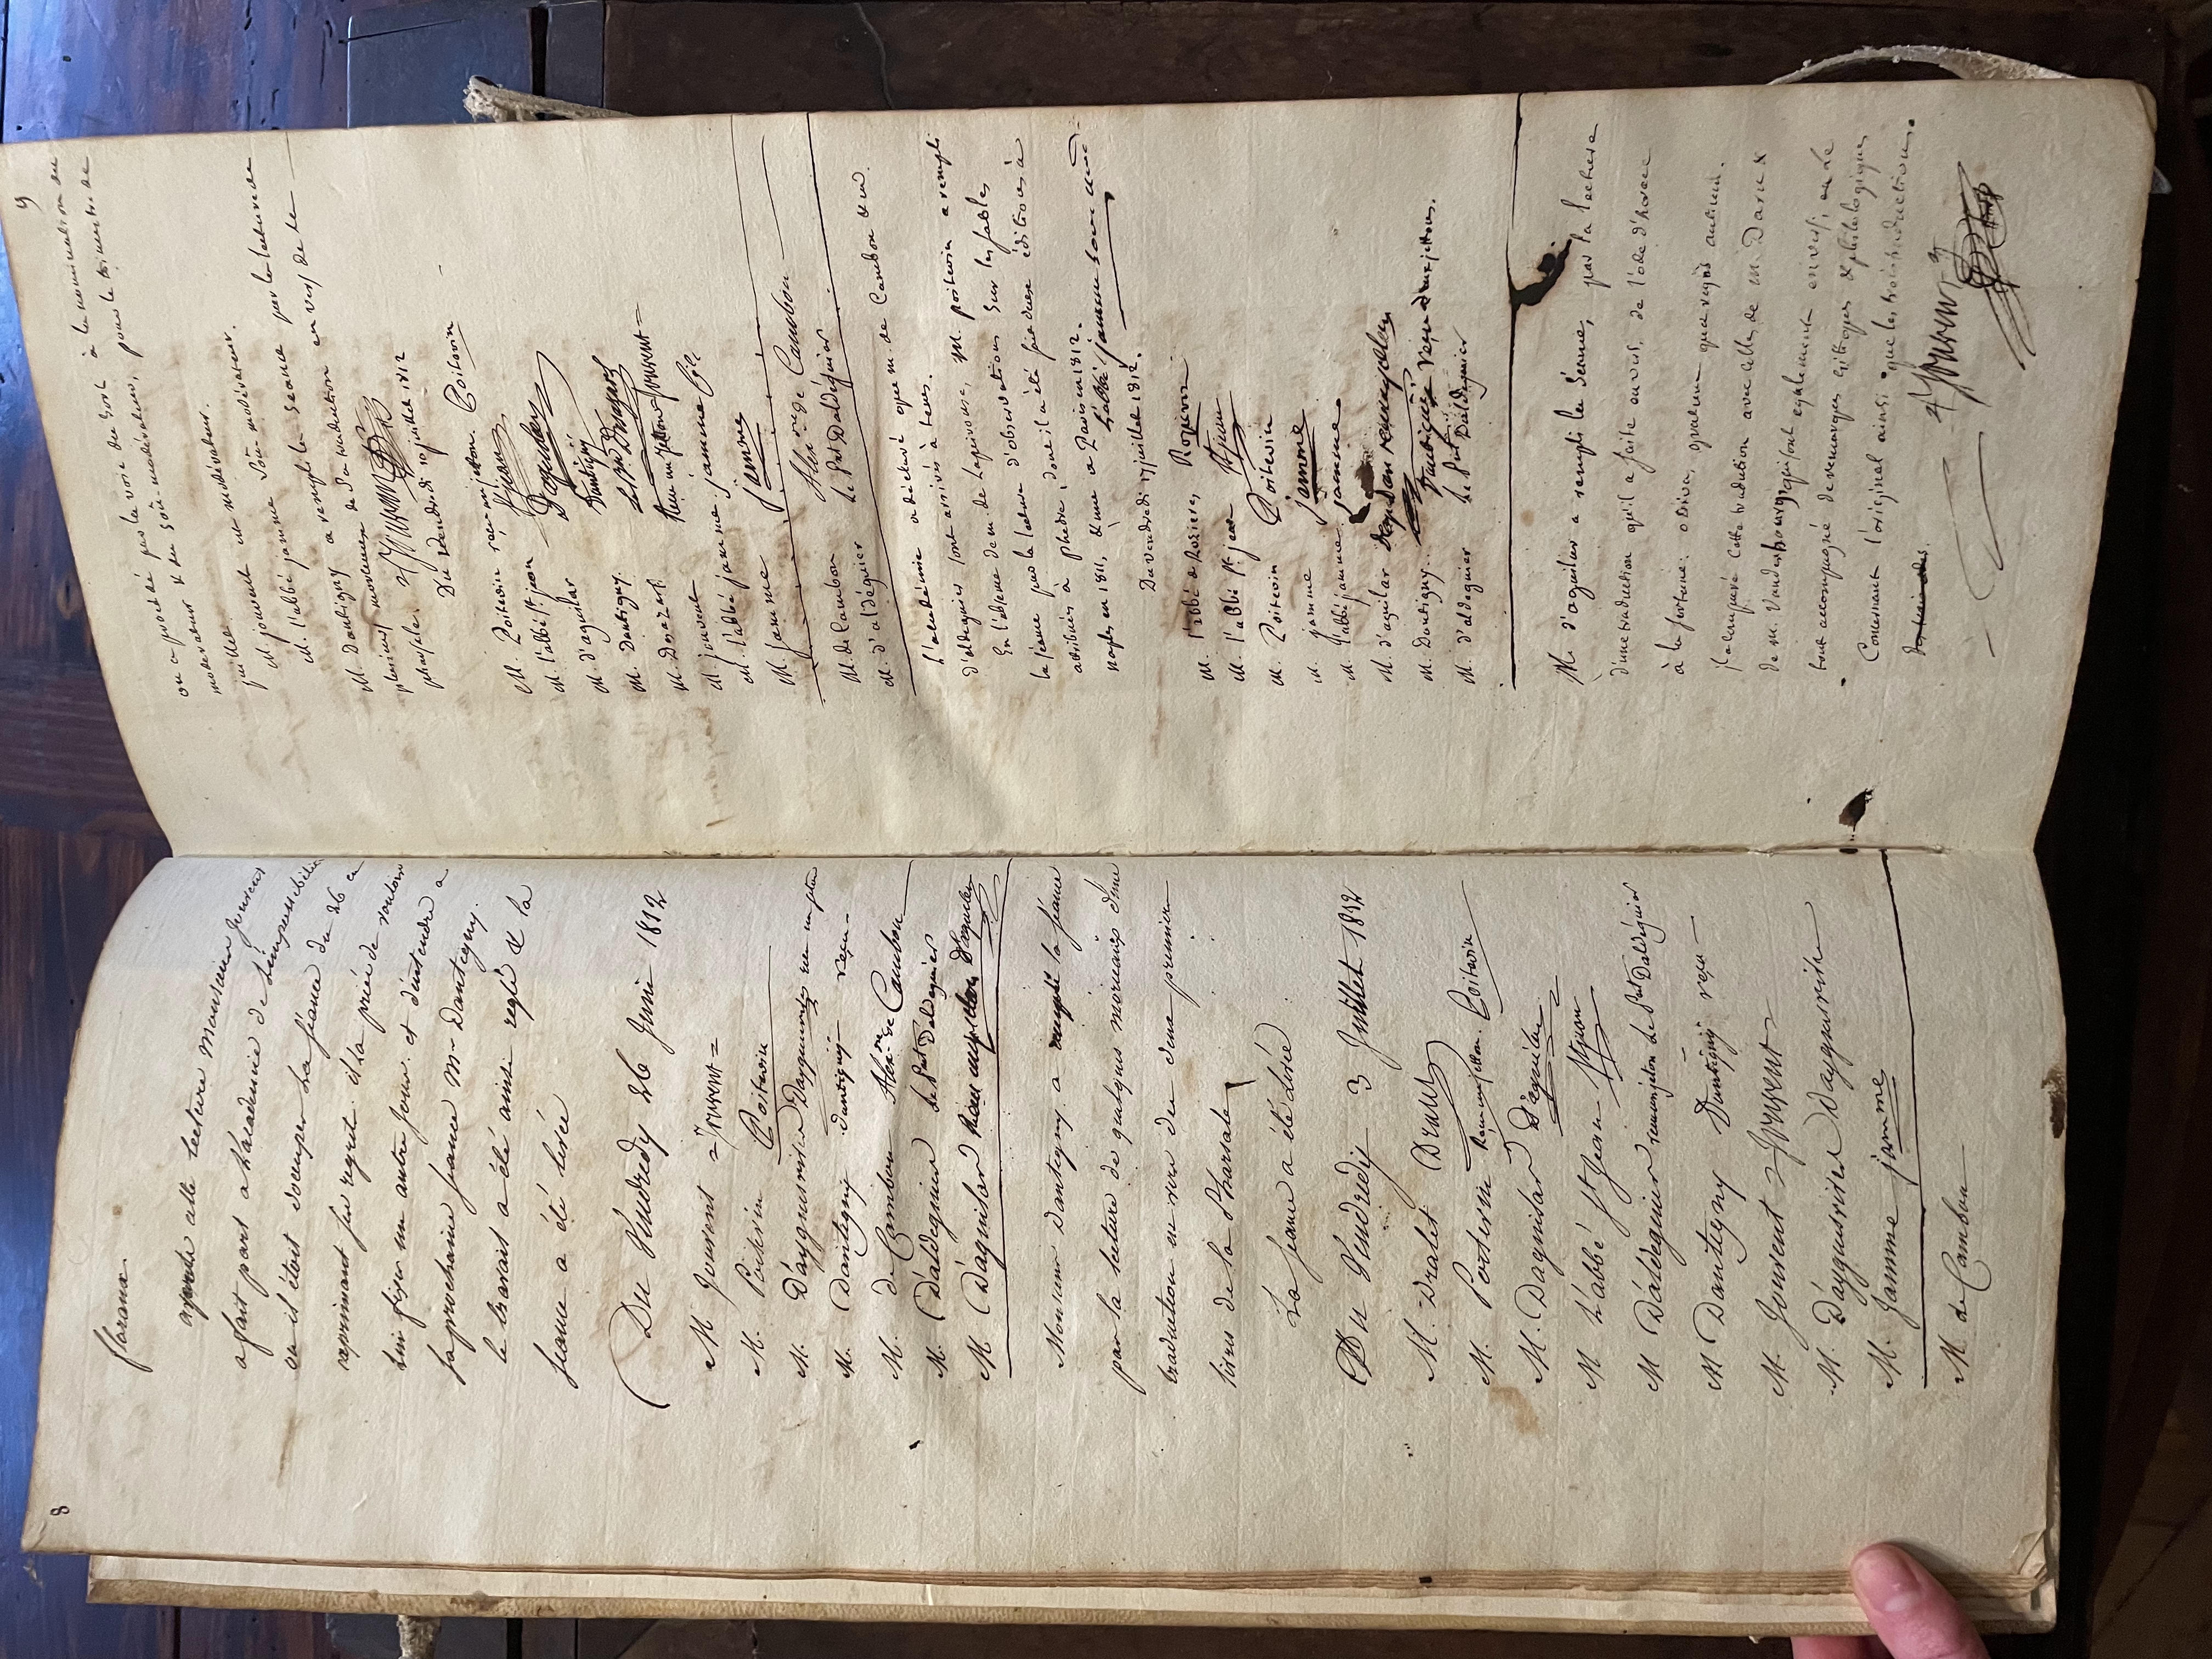 8
floraux.
après cette lecture Monsieur Jouvent
a fait part a l'académie de l'impossibilité
ou il étoit d'occuper la séance du 26 en
exprimant ses regrets. il l'a priée de vouloir
lui fixer un autre jour et d'entendre a
la prochaine séance Mr Dantigny.
le travail a été ainsi reglé & la
seance a été levée
Du Vendredy 26 Juin 1812
M Jouvent Jouvent
M. Poitevin Poitevin
M. D'ayguesvives Dayguesvives reçu un jeton
M. Dantigny dantigny reçu
M. de Cambon Alex. de Cambon
M. D'aldeguier Le Pnt Daldeguier
M D'aguilar D'aguilar
Monsieur Dantigny a rempli la séance
par la lecture de quelques morceaux d'une
traduction en vers du premier
livre de la Pharsale
La séance a été levée
Du Vendredy 3 Juillet 1812
M. Dralet Dralet
M. Poitevin Reçu un jetton. Poitevin
M. Daguilar D'aguilar
M l'abbé St Jean St jean
M D'aldeguier reçu un jeton Le Pnt Daldeguier
M Dantigny Dantigny reçu
M. Jouvent Jouvent
M. D'ayguesvives Dayguesvives
M. Jamme jamme
M. de Cambon
9
on a procédé par la voie du sort à la nomination du
moderateur & du sous-modérateur, pour le trimestre de
juillet.
M. jouvent est modérateur.
M. l'abbé jamme sous-modérateur.
M. Dantigny a rempli la séance par la lecture de
plusieurs morceaux de sa traduction en vers de la
pharsale. Jouvent
Du Vendredi 10 juillet 1812
M. Poitevin reçu un jetton. Poitevin
M. l'abbé St jean St jean
M. d'aguilar Daguilar
M. Dantigny. Dantigny
M. Jouvent Reçu un jetton Jouvent
M. l'abbé jamme jamme
M. jamme jamme
M. de Cambon Alex. de Cambon
M. d'aldéguier le Pnt Daldéguier
l'académie a déclaré que m. de Cambon & m.
d'aldeguier sont arrivés à tems.
En l'absence de m. de Lapeirouse, M. poitevin a rempli
la séance par la lecture d'observations sur les fables
attribuées à phedre, dont il a été fait deux éditions à
naples en 1811, & une a Paris en 1812.
Du vendredi 17 juillet 1812.
M. l'abbé de Roziere, Rozieres
M. l'abbé St. jean St jean
M. Poitevin Poitevin
M. jamme jamme
M. l'abbé jamme jamme
M. d'aguilar
M. Dantigny. Dantigny Reçu deux jettons.
M. d'aldeguier le Pnt Daldeguier
M. d'aguilar a rempli la séance, par la lecture
d'une traduction qu'il a faite en vers, de l'ode d'horace
à la fortune: o Diva, gratum quæ regis antium.
il a comparé cette traduction avec celles de m. Daru &
de m. Vanderbourg, qui sont egalement en vers; en le
tout accompagné de remarques critiques & philologiques
Concernant l'original ainsi que les trois traductions.
Jouvent